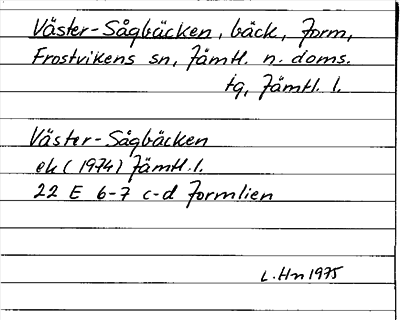 Väster-Sågbäcken, bäck, Jorm,
Frostvikens sn, Jämtl. n. doms.
tg, Jämtl. l.
Väster-Sågbäcken
ek (1974) Jämtl. l.
22 E 6-7 c-d Jormlien
L. Hn 1975